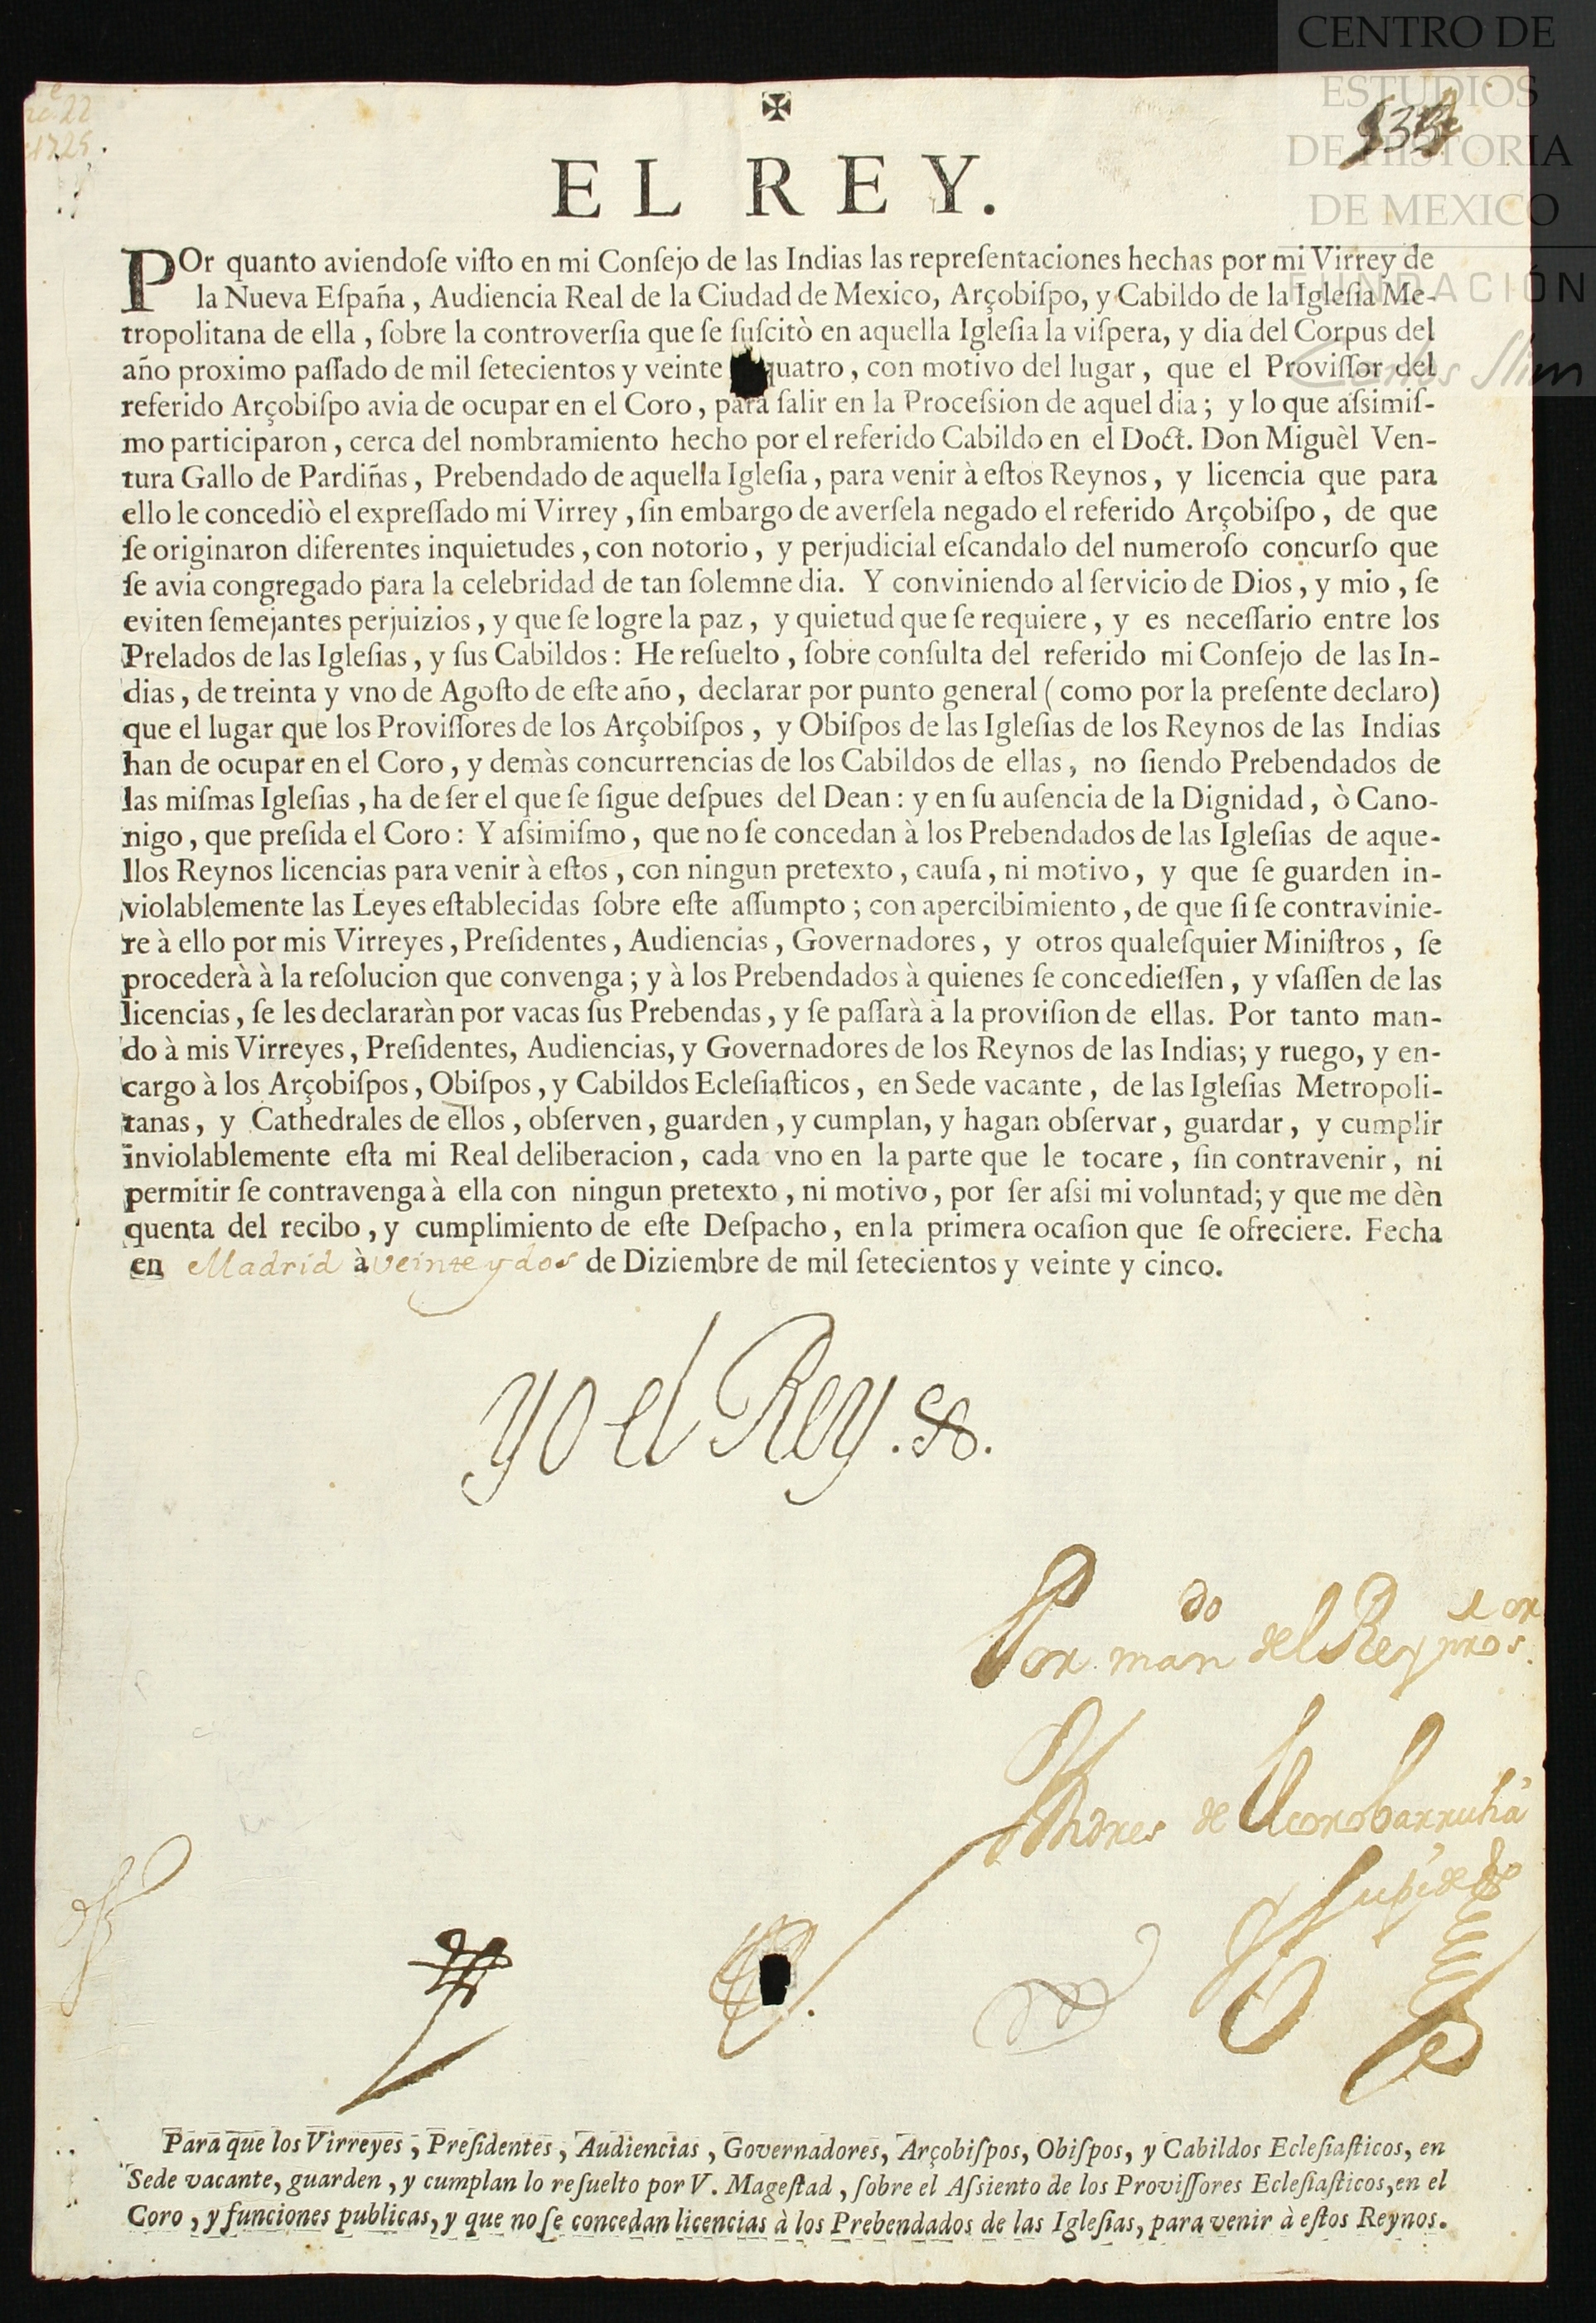 CENTRO DE
ESTUDIOS
DE HISTORIA
DE MEXICO
FUNDACIÓN
Carlos Slim
22
1725.
EL REY.
POr quanto aviendoſe viſto en mi Conſejo de las Indias las repreſentaciones hechas por mi Virrey de
la Nueva Eſpaña, Audiencia Real de la Ciudad de Mexico, Arçobiſpo, y Cabildo de la Igleſia Me-
tropolitana de ella, ſobre la controverſia que ſe ſuſcitò en aquella Igleſia la viſpera, y dia del Corpus del
año proximo paſſado de mil ſetecientos y veinte quatro, con motivo del lugar, que el Proviſſor del
referido Arçobiſpo avia de ocupar en el Coro, para ſalir en la Proceſsion de aquel dia; y lo que aſsimiſ-
mo participaron, cerca del nombramiento hecho por el referido Cabildo en el Doct. Don Miguèl Ven-
tura Gallo de Pardiñas, Prebendado de aquella Igleſia, para venir à eſtos Reynos, y licencia que para
ello le concediò el expreſſado mi Virrey, ſin embargo de averſela negado el referido Arçobiſpo, de que
ſe originaron diferentes inquietudes, con notorio, y perjudicial eſcandalo del numeroſo concurſo que
ſe avia congregado para la celebridad de tan ſolemne dia. Y conviniendo al ſervicio de Dios, y mio, ſe
eviten ſemejantes perjuizios, y que ſe logre la paz, y quietud que ſe requiere, y es neceſſario entre los
Prelados de las Igleſias, y ſus Cabildos: He reſuelto, ſobre conſulta del referido mi Conſejo de las In-
dias, de treinta y vno de Agoſto de eſte año, declarar por punto general (como por la preſente declaro)
que el lugar que los Proviſſores de los Arçobiſpos, y Obiſpos de las Igleſias de los Reynos de las Indias
han de ocupar en el Coro, y demàs concurrencias de los Cabildos de ellas, no ſiendo Prebendados de
las miſmas Igleſias, ha de ſer el que ſe ſigue deſpues del Dean: y en ſu auſencia de la Dignidad, ò Cano-
nigo, que preſida el Coro: Y aſsimiſmo, que no ſe concedan à los Prebendados de las Igleſias de aque-
llos Reynos licencias para venir à eſtos, con ningun pretexto, cauſa, ni motivo, y que ſe guarden in-
violablemente las Leyes eſtablecidas ſobre eſte aſſumpto; con apercibimiento, de que ſi ſe contravinie-
re à ello por mis Virreyes, Preſidentes, Audiencias, Governadores, y otros qualeſquier Miniſtros, ſe
procederà à la reſolucion que convenga; y à los Prebendados à quienes ſe concedieſſen, y vſaſſen de las
licencias, ſe les declararàn por vacas ſus Prebendas, y ſe paſſarà à la proviſion de ellas. Por tanto man-
do à mis Virreyes, Preſidentes, Audiencias, y Governadores de los Reynos de las Indias; y ruego, y en-
cargo à los Arçobiſpos, Obiſpos, y Cabildos Ecleſiaſticos, en Sede vacante, de las Igleſias Metropoli-
tanas, y Cathedrales de ellos, obſerven, guarden, y cumplan, y hagan obſervar, guardar, y cumplir
inviolablemente eſta mi Real deliberacion, cada vno en la parte que le tocare, ſin contravenir, ni
permitir ſe contravenga à ella con ningun pretexto, ni motivo, por ſer aſsi mi voluntad; y que me dèn
quenta del recibo, y cumplimiento de eſte Deſpacho, en la primera ocaſion que ſe ofreciere. Fecha
en Madrid à veinte y dos de Diziembre de mil ſetecientos y veinte y cinco.
Yo el Rey.
Por man do del Rey nro s.or
Andres de
Para que los Virreyes, Preſidentes, Audiencias, Governadores, Arçobiſpos, Obiſpos, y Cabildos Ecleſiaſticos, en
Sede vacante, guarden, y cumplan lo reſuelto por V. Mageſtad, ſobre el Aſsiento de los Proviſſores Ecleſiaſticos, en el
Coro, y funciones publicas, y que no ſe concedan licencias à los Prebendados de las Igleſias, para venir à eſtos Reynos.